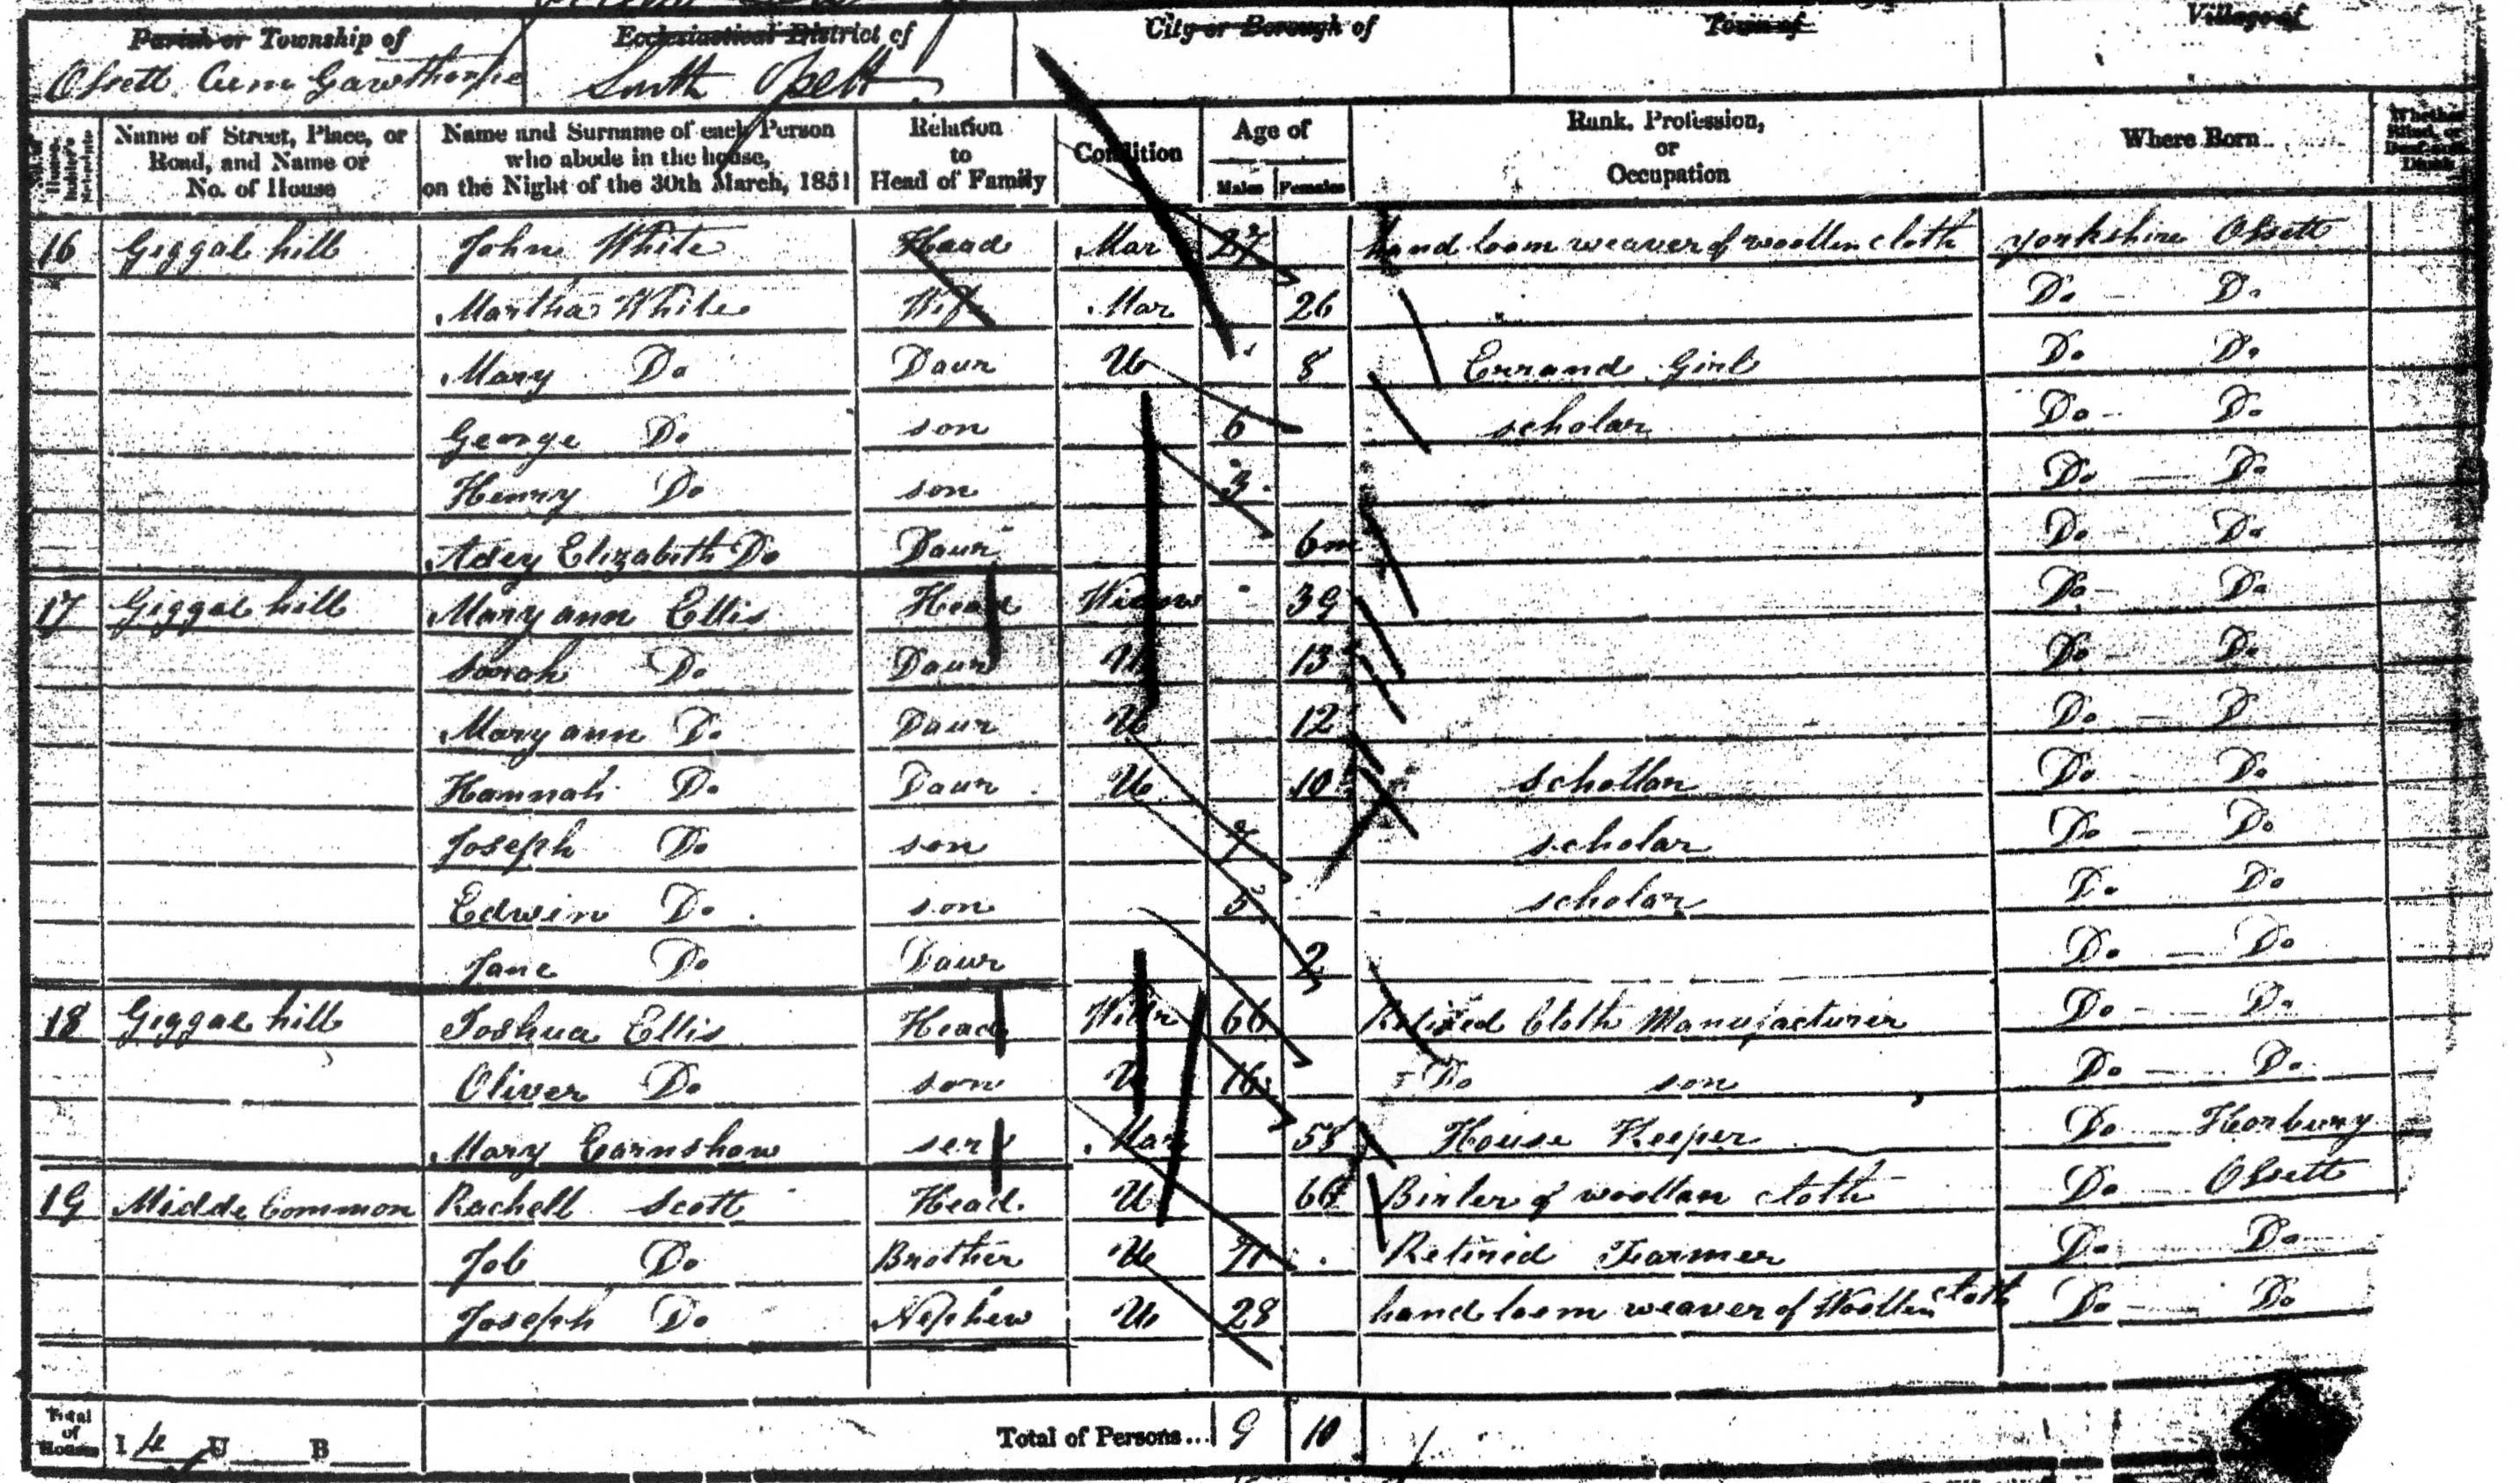 Parish or Township of
Ecclesiastical District of
City or Borough of
Town of
Village of
Ossett Cum Gawthorpe
South Ossett
Name of Street, Place, or Road, and Name or No. of House
Name and Surname of each Person who abode in the house, on the Night of the 30th March, 1851
Relation to Head of Family
Condition
Age of
Males Females
Rank, Profession, or Occupation
Where Born
Whether Blind, or Deaf-and-Dumb
16 Giggal hill John White Head Mar 27 hand loom weaver of woollen cloth Yorkshire Ossett
Martha White Wife Mar 26 Do Do
Mary Do Daur U 8 Errand Girl Do Do
George Do son 6 scholar Do Do
Henry Do son 3 Do Do
Adey Elizabeth Do Daur 6m Do Do
17 Giggal hill Mary ann Ellis Head Widow 39 Do Do
Sarah Do Daur U 13 Do Do
Mary ann Do Daur U 12 Do D
Hannah Do Daur U 10 schollar Do Do
Joseph Do son 7 scholar Do Do
Edwin Do son 5 scholar Do Do
Jane Do Daur 2 Do Do
18 Giggal hill Joshua Ellis Head Widr 66 Retired Cloth Manufacturer Do Do
Oliver Do son U 16 Do son Do Do
Mary Earnshaw serv Mar 58 House Keeper Do Horbury
19 Midde Common Rachell Scott Head U Burler of woollan cloth Do Ossett
Job Do Brother U 71 Retired Farmer Do Do
Joseph Do Nephew U 28 hand loom weaver of Woollen cloth Do Do
Total of Houses I 4 U B Total of Persons... 9 10